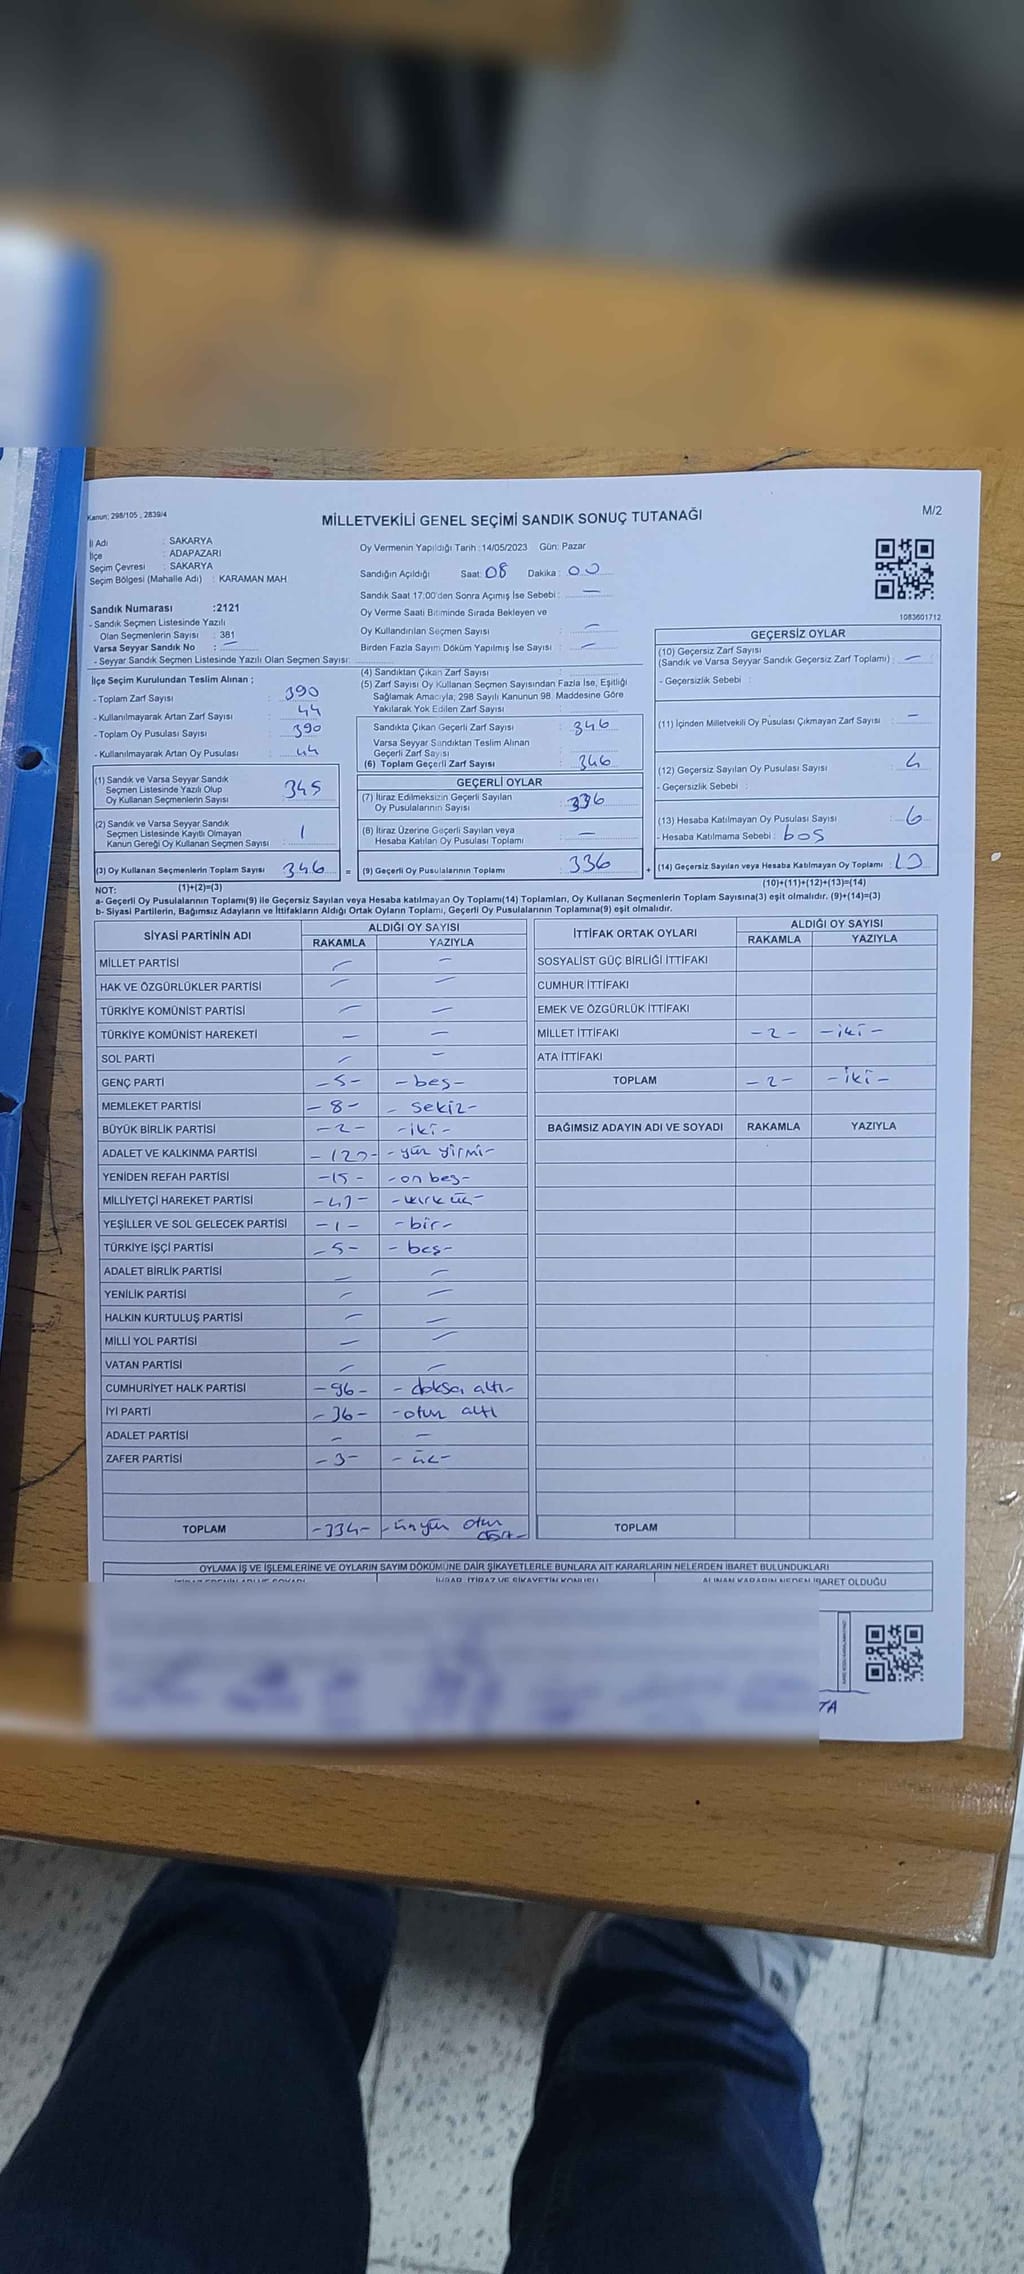 Kanun; 298/105 , 2839/4
MİLLETVEKİLİ GENEL SEÇİMİ SANDIK SONUÇ TUTANAĞI
M/2
İl Adı : SAKARYA
İlçe : ADAPAZARI
Seçim Çevresi : SAKARYA
Seçim Bölgesi (Mahalle Adı) : KARAMAN MAH
Sandık Numarası :2121
- Sandık Seçmen Listesinde Yazılı
Olan Seçmenlerin Sayısı : 381
Varsa Seyyar Sandık No : —
- Seyyar Sandık Seçmen Listesinde Yazılı Olan Seçmen Sayısı:
Oy Vermenin Yapıldığı Tarih :14/05/2023 Gün: Pazar
Sandığın Açıldığı Saat: 08 Dakika : 00
Sandık Saat 17:00'den Sonra Açımış İse Sebebi : —
Oy Verme Saati Bitiminde Sırada Bekleyen ve
Oy Kullandırılan Seçmen Sayısı : —
Birden Fazla Sayım Döküm Yapılmış İse Sayısı : —
1083601712
İlçe Seçim Kurulundan Teslim Alınan ;
- Toplam Zarf Sayısı : 390
- Kullanılmayarak Artan Zarf Sayısı : 44
- Toplam Oy Pusulası Sayısı : 390
- Kullanılmayarak Artan Oy Pusulası : 44
(1) Sandık ve Varsa Seyyar Sandık
Seçmen Listesinde Yazılı Olup
Oy Kullanan Seçmenlerin Sayısı : 345
(2) Sandık ve Varsa Seyyar Sandık
Seçmen Listesinde Kayıtlı Olmayan
Kanun Gereği Oy Kullanan Seçmen Sayısı : 1
(3) Oy Kullanan Seçmenlerin Toplam Sayısı : 346 =
(1)+(2)=(3)
(4) Sandıktan Çıkan Zarf Sayısı :
(5) Zarf Sayısı Oy Kullanan Seçmen Sayısından Fazla İse, Eşitliği
Sağlamak Amacıyla, 298 Sayılı Kanunun 98. Maddesine Göre
Yakılarak Yok Edilen Zarf Sayısı :
Sandıkta Çıkan Geçerli Zarf Sayısı : 346
Varsa Seyyar Sandıktan Teslim Alınan
Geçerli Zarf Sayısı :
(6) Toplam Geçerli Zarf Sayısı : 346
GEÇERLİ OYLAR
(7) İtiraz Edilmeksizin Geçerli Sayılan
Oy Pusulalarının Sayısı : 336
(8) İtiraz Üzerine Geçerli Sayılan veya
Hesaba Katılan Oy Pusulası Toplamı : —
(9) Geçerli Oy Pusulalarının Toplamı : 336 +
GEÇERSİZ OYLAR
(10) Geçersiz Zarf Sayısı
(Sandık ve Varsa Seyyar Sandık Geçersiz Zarf Toplamı) : —
- Geçersizlik Sebebi :
(11) İçinden Milletvekili Oy Pusulası Çıkmayan Zarf Sayısı : —
(12) Geçersiz Sayılan Oy Pusulası Sayısı : 4
- Geçersizlik Sebebi :
(13) Hesaba Katılmayan Oy Pusulası Sayısı : 6
- Hesaba Katılmama Sebebi : boş
(14) Geçersiz Sayılan veya Hesaba Katılmayan Oy Toplamı : 10
(10)+(11)+(12)+(13)=(14)
NOT:
a- Geçerli Oy Pusulalarının Toplamı(9) ile Geçersiz Sayılan veya Hesaba katılmayan Oy Toplamı(14) Toplamları, Oy Kullanan Seçmenlerin Toplam Sayısına(3) eşit olmalıdır. (9)+(14)=(3)
b- Siyasi Partilerin, Bağımsız Adayların ve İttifakların Aldığı Ortak Oyların Toplamı, Geçerli Oy Pusulalarının Toplamına(9) eşit olmalıdır.
SİYASİ PARTİNİN ADI ALDIĞI OY SAYISI
RAKAMLA YAZIYLA
MİLLET PARTİSİ — —
HAK VE ÖZGÜRLÜKLER PARTİSİ — —
TÜRKİYE KOMÜNİST PARTİSİ — —
TÜRKİYE KOMÜNİST HAREKETİ — —
SOL PARTİ — —
GENÇ PARTİ -5- -beş-
MEMLEKET PARTİSİ -8- - sekiz-
BÜYÜK BİRLİK PARTİSİ -2- -iki-
ADALET VE KALKINMA PARTİSİ -120- -yüz yirmi-
YENİDEN REFAH PARTİSİ -15- -on beş-
MİLLİYETÇİ HAREKET PARTİSİ -43- -kırk üç-
YEŞİLLER VE SOL GELECEK PARTİSİ -1- -bir-
TÜRKİYE İŞÇİ PARTİSİ -5- -beş-
ADALET BİRLİK PARTİSİ — —
YENİLİK PARTİSİ — —
HALKIN KURTULUŞ PARTİSİ — —
MİLLİ YOL PARTİSİ — —
VATAN PARTİSİ — —
CUMHURİYET HALK PARTİSİ -96- -doksan altı-
İYİ PARTİ -36- -otuz altı
ADALET PARTİSİ — —
ZAFER PARTİSİ -3- -üç-
TOPLAM -334- -üçyüz otuz dört-
İTTİFAK ORTAK OYLARI ALDIĞI OY SAYISI
RAKAMLA YAZIYLA
SOSYALİST GÜÇ BİRLİĞİ İTTİFAKI
CUMHUR İTTİFAKI
EMEK VE ÖZGÜRLÜK İTTİFAKI
MİLLET İTTİFAKI -2- -iki-
ATA İTTİFAKI
TOPLAM -2- -iki-
BAĞIMSIZ ADAYIN ADI VE SOYADI RAKAMLA YAZIYLA
TOPLAM
OYLAMA İŞ VE İŞLEMLERİNE VE OYLARIN SAYIM DÖKÜMÜNE DAİR ŞİKAYETLERLE BUNLARA AİT KARARLARIN NELERDEN İBARET BULUNDUKLARI
İTİRAZ EDENİN ADI VE SOYADI İHBAR, İTİRAZ VE ŞİKAYETİN KONUSU ALINAN KARARIN NEDEN İBARET OLDUĞU
TA